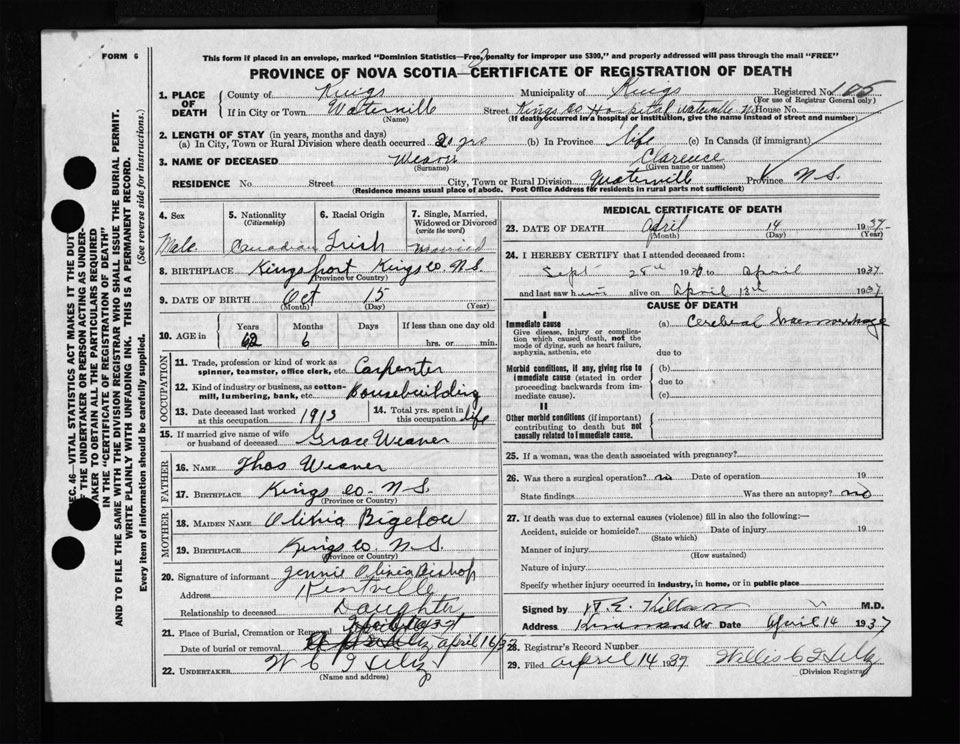 FORM 6
This form if placed in an envelope, marked "Dominion Statistics—Free, penalty for improper use $300," and properly addressed will pass through the mail "FREE"
PROVINCE OF NOVA SCOTIA—CERTIFICATE OF REGISTRATION OF DEATH
1. PLACE OF DEATH
County of Kings Municipality of Kings Registered No. 105
(For use of Registrar General only)
If in City or Town Waterville Street Kings Co Hospital Waterville House No.
(Name) (If death occurred in a hospital or institution, give the name instead of street and number)
2. LENGTH OF STAY (in years, months and days)
(a) In City, Town or Rural Division where death occurred 20 yrs (b) In Province life (c) In Canada (if immigrant)
3. NAME OF DECEASED Weaver Clarence
(Surname) (Given name or names)
RESIDENCE No Street City, Town or Rural Division Waterville Province N.S.
(Residence means usual place of abode. Post Office Address for residents in rural parts not sufficient)
4. Sex Male
5. Nationality (Citizenship) Canadian
6. Racial Origin Irish
7. Single, Married, Widowed or Divorced (write the word) Married
8. BIRTHPLACE Kingsport Kings Co. N.S.
(Province or Country)
9. DATE OF BIRTH Oct 15
(Month) (Day) (Year)
10. AGE in Years Months Days If less than one day old
62 6 hrs. or min.
OCCUPATION
11. Trade, profession or kind of work as spinner, teamster, office clerk, etc. Carpenter
12. Kind of industry or business, as cotton-mill, lumbering, bank, etc. Housebuilding
13. Date deceased last worked at this occupation 1913
14. Total yrs. spent in this occupation life
15. If married give name of wife or husband of deceased Grace Weaver
FATHER
16. NAME Thos Weaver
17. BIRTHPLACE Kings Co. N.S.
(Province or Country)
MOTHER
18. MAIDEN NAME Olivia Bigelow
19. BIRTHPLACE Kings Co. N.S.
(Province or Country)
20. Signature of informant Jennie Olivia Bishop
Address Kentville
Relationship to deceased Daughter
21. Place of Burial, Cremation or Removal
Date of burial or removal April 16/37
22. UNDERTAKER W C
(Name and address)
MEDICAL CERTIFICATE OF DEATH
23. DATE OF DEATH April 14 1937
(Month) (Day) (Year)
24. I HEREBY CERTIFY that I attended deceased from:
Sept 28th to April 1937
and last saw him alive on April 13th 1937
CAUSE OF DEATH
I
Immediate cause
Give disease, injury or complication which caused death, not the mode of dying, such as heart failure, asphyxia, asthenia, etc
(a) Cerebral haemorrhage
due to
Morbid conditions, if any, giving rise to immediate cause (stated in order proceeding backwards from immediate cause).
(b)
due to
(c)
II
Other morbid conditions (if important) contributing to death but not causally related to immediate cause.
25. If a woman, was the death associated with pregnancy?
26. Was there a surgical operation? no Date of operation 19
State findings Was there an autopsy? no
27. If death was due to external causes (violence) fill in also the following:—
Accident, suicide or homicide? Date of injury 19
(State which)
Manner of injury
(How sustained)
Nature of injury
Specify whether injury occurred in industry, in home, or in public place
Signed by M.D.
Address Date April 14 1937
28. Registrar's Record Number
29. Filed April 14 1937 Willis C
(Division Registrar)
SEC. 46—VITAL STATISTICS ACT MAKES IT THE DUTY
OF THE UNDERTAKER OR PERSON ACTING AS UNDER-
TAKER TO OBTAIN ALL THE PARTICULARS REQUIRED
IN THE "CERTIFICATE OF REGISTRATION OF DEATH"
AND TO FILE THE SAME WITH THE DIVISION REGISTRAR WHO SHALL ISSUE THE BURIAL PERMIT.
WRITE PLAINLY WITH UNFADING INK. THIS IS A PERMANENT RECORD.
Every item of information should be carefully supplied. (See reverse side for instructions.)